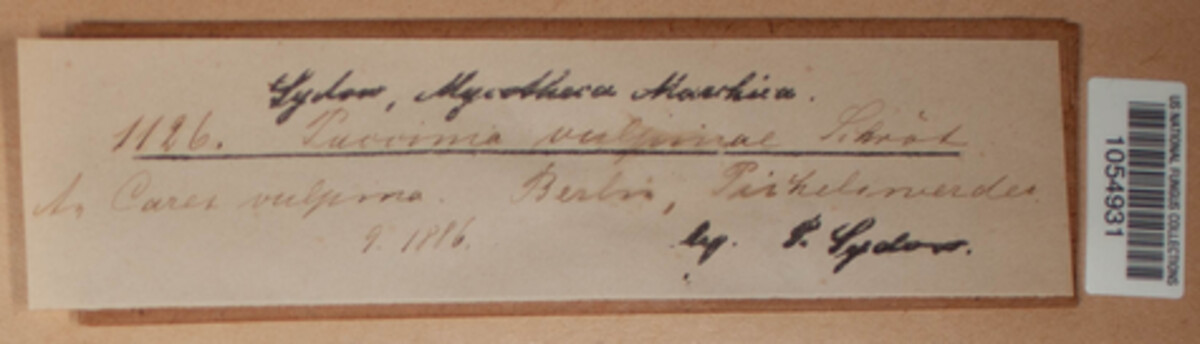 Sydow, Mycotheca Marchica.
1126. Puccinia vulpinae Schröt
An Carex vulpina. Berlin, Pichelswerder.
9. 1886. leg. P. Sydow.
US NATIONAL FUNGUS COLLECTIONS
1054931